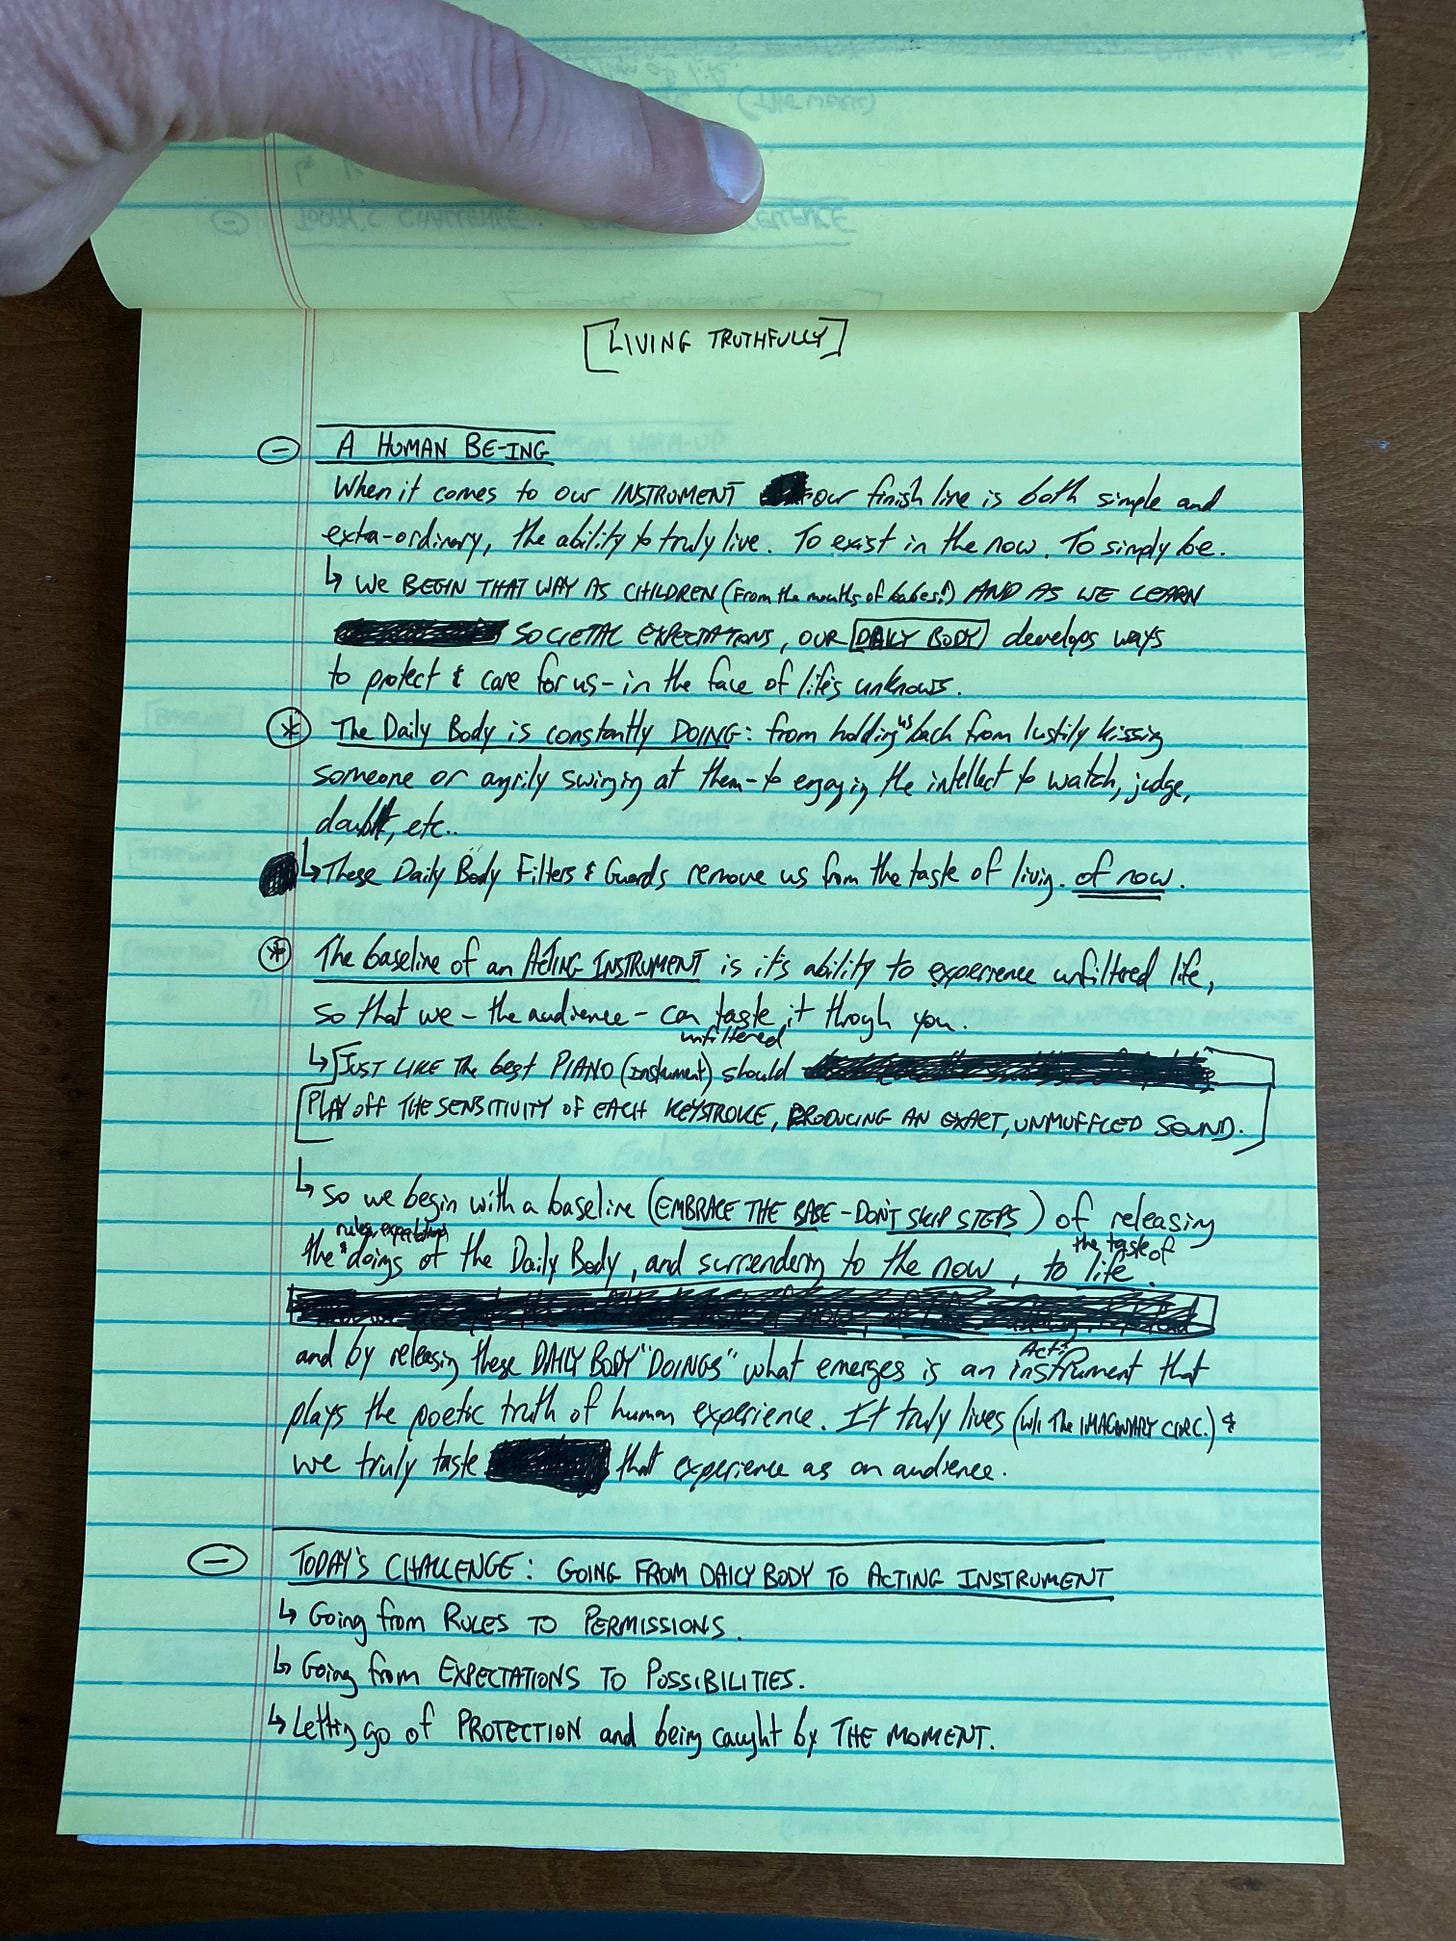 [LIVING TRUTHFULLY]
A HUMAN BE-ING
When it comes to our INSTRUMENT our finish line is both simple and
extra-ordinary, the ability to truly live. To exist in the now. To simply be.
↳ WE BEGIN THAT WAY AS CHILDREN (From the mouths of babes!) AND AS WE LEARN
SOCIETAL EXPECTATIONS, OUR DAILY BODY develops ways
to protect & care for us - in the face of life's unknows.
* The Daily Body is constantly DOING: from holding us back from lustily kissing
someone or angrily swinging at them - to engaging the intellect to watch, judge,
doubt, etc..
↳ These Daily Body Filters & Guards remove us from the taste of living. of now.
* The baseline of an ACTING INSTRUMENT is it's ability to experience unfiltered life,
so that we - the audience - can taste unfiltered it through you.
↳ [JUST LIKE THE best PIANO (instrument) should
PLAY OFF THE SENSITIVITY OF EACH KEYSTROKE, PRODUCING AN EXACT, UNMUFFLED SOUND.]
↳ So we begin with a baseline (EMBRACE THE BASE - DON'T SKIP STEPS) of releasing
the rules, expectations & doings of the Daily Body, and surrendering to the now, to the taste of life.
and by releasing these DAILY BODY "DOINGS" what emerges is an Act. instrument that
plays the poetic truth of human experience. It truly lives (w/i THE IMAGINARY CIRC.) &
we truly taste that experience as an audience.
TODAY'S CHALLENGE: GOING FROM DAILY BODY TO ACTING INSTRUMENT
↳ Going from RULES TO PERMISSIONS.
↳ Going from EXPECTATIONS TO POSSIBILITIES.
↳ Letting go of PROTECTION and being caught by THE MOMENT.